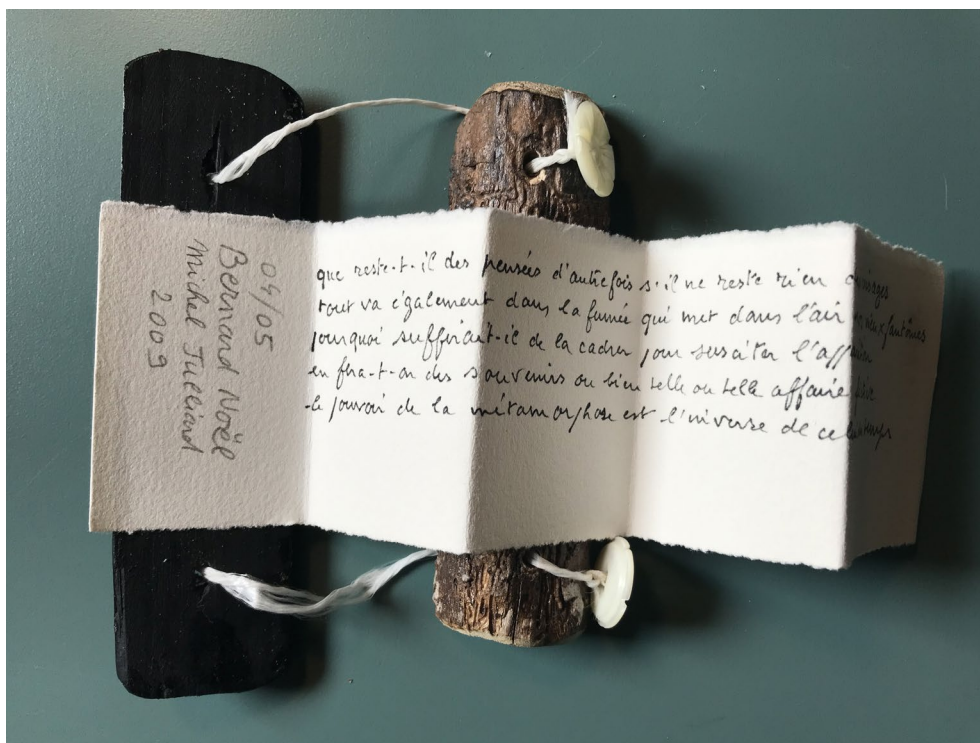 04/05
Bernard Noël
Michel Julliard
2009
que reste-t-il des pensées d'autrefois s'il ne reste rien
tout va également dans la fumée qui met dans l'air
pourquoi suffirait-il de la cadrer pour susciter l'
en fera-t-on des souvenirs ou bien telle ou telle affaire
le pouvoir de la métamorphose est l'inverse de celui